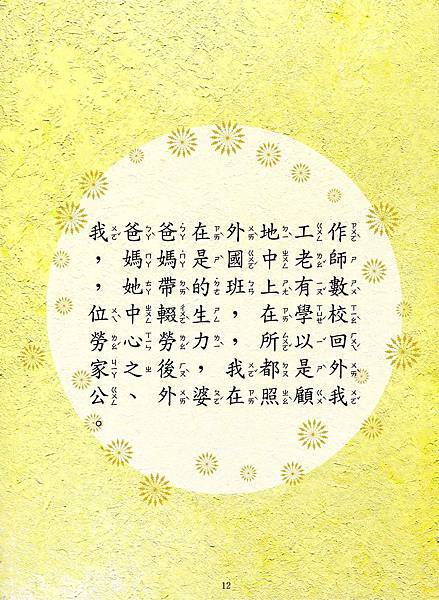 我爸爸在外地工作
，媽媽是國中老師
，她帶的班上有數
位中輟生，在學校
勞心勞力，所以回
家之後，我都是外
公、外婆在照顧我
。
12